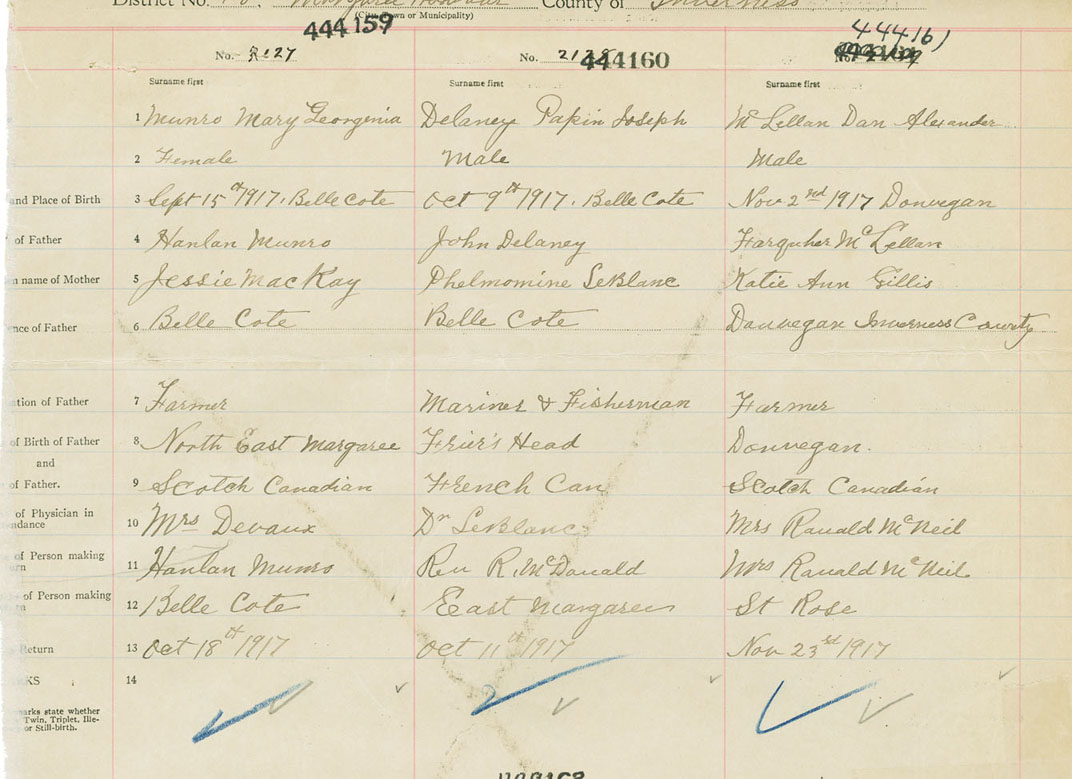 District No. Margaree Harbour County of Inverness
(City, Town or Municipality)
444159 44416)
No. 2127 No. 2128 444160 No.
Surname first Surname first Surname first
1 Munro Mary Georginia Delaney Papin Joseph Mc Lellan Dan Alexander
2 Female Male Male
and Place of Birth 3 Sept 15th 1917, Belle Cote Oct 9th 1917. Belle Cote Nov 2nd 1917 Donvegan
of Father 4 Hanlan Munro John Delaney Farquher Mc Lellan
n name of Mother 5 Jessie MacKay Phelmomine LeBlanc Katie Ann Gillis
nce of Father 6 Belle Cote Belle Cote Danvegan Inverness County
tion of Father 7 Farmer Mariner & Fisherman Farmer
of Birth of Father 8 North East Margaree Frier's Head Donvegan.
and
of Father. 9 Scotch Canadian French Can Scotch Canadian
of Physician in
ndance 10 Mrs Devaux Dr LeBlanc Mrs Ranald McNeil
of Person making
rn 11 Hanlan Munro Rev R. McDonald Mrs Ranald McNeil
of Person making
12 Belle Cote East Margaree St Rose
Return 13 Oct 18th 1917 Oct 11th 1917 Nov 23rd 1917
KS 14
arks state whether
Twin, Triplet, Ille-
or Still-birth.